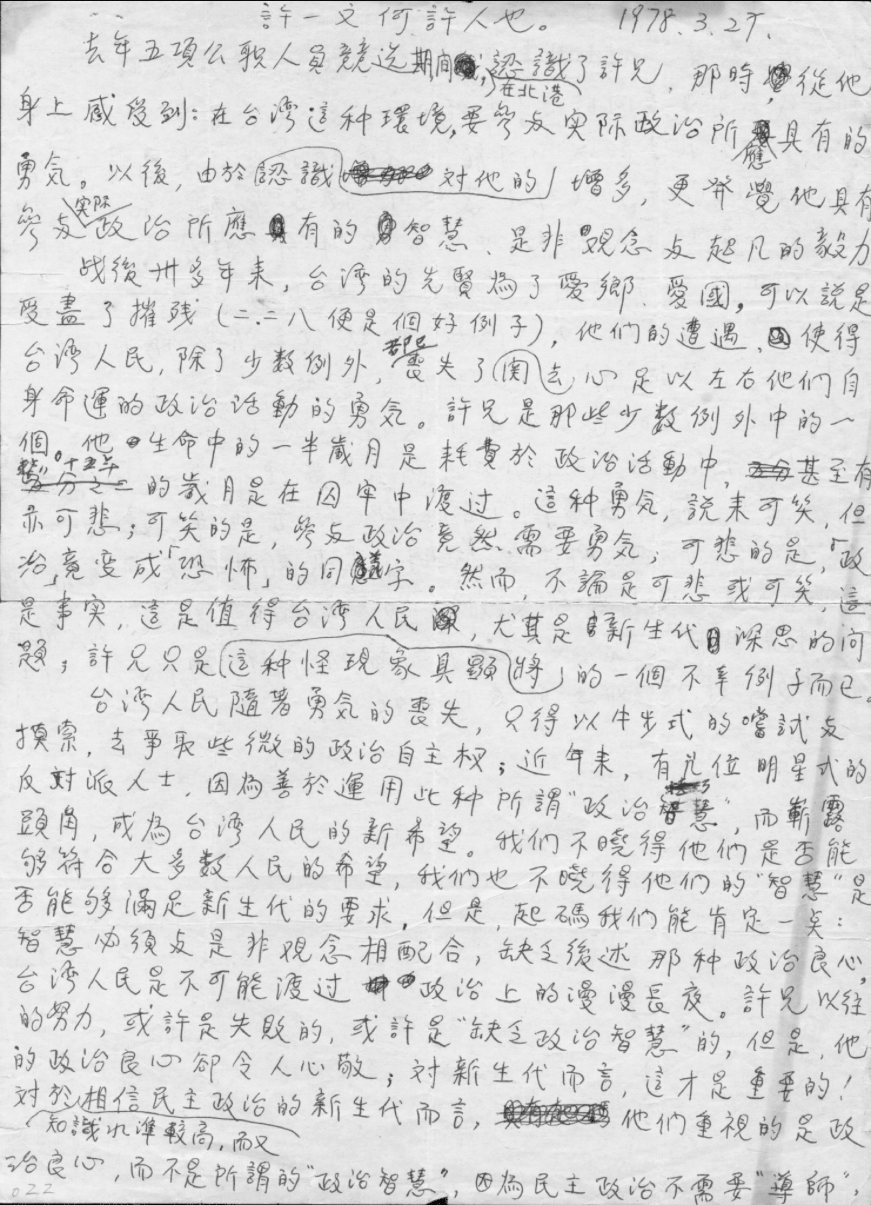 許一文何許人也。 1978.3.27.
去年五項公职人員競选期間,認識了許兄,那時,從他
在北港
身上感受到:在台湾這种環境,要參与实际政治所具有的
應
勇気。以後,由於認識对他的增多,更発覺他具有
实际
參与政治所應有的智慧、是非观念与起凡的毅力
战後卅多年来,台湾的先賢為了愛鄉、愛國,可以說是
受盡了摧残(二.二八便是個好例子),他們的遭遇,使得
台湾人民,除了少数例外,都丧失了関去心足以左右他們自
身命運的政治活動的勇気。許兄是那些少数例外中的一
個。他生命中的一半歲月是耗費於政治活動中,甚至有
十五年
的歲月是在囚牢中渡过。這种勇気,説来可笑,但
亦可悲;可笑的是,參与政治竟然需要勇気;可悲的是,「政
治」竟变成「恐怖」的同義字。然而,不論是可悲或可笑,這
是事实,這是值得台湾人民,尤其是新生代深思的问
题;許兄只是這种怪現象具顯將的一個不幸例子而已。
台湾人民隨著勇気的丧失,只得以牛步式的嚐試与
摸索,去爭取些微的政治自主权;近年来,有几位明星式的
反対派人士,因為善於運用此种所謂"政治智慧",而嶄露
頭角,成為台湾人民的新希望。我们不曉得他們是否能
够符合大多数人民的希望,我們也不曉得他們的"智慧"是
否能够滿足新生代的要求,但是,起碼我们能肯定一点:
智慧必須与是非观念相配合,缺乏後述那种政治良心,
台湾人民是不可能渡过政治上的漫漫長夜。許兄以往
的努力,或許是失敗的,或許是"缺乏政治智慧"的,但是,他
的政治良心卻令人心敬;対新生代而言,這才是重要的!
対於相信民主政治的新生代而言,他們重視的是政
知識水準較高,而又
治良心,而不是所謂的"政治智慧",因為民主政治不需要"導師",
022